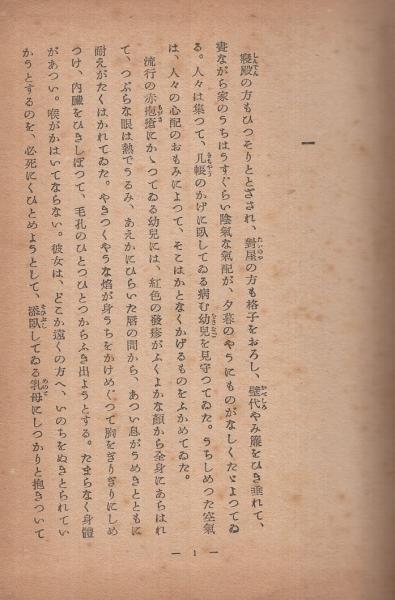 一
寢殿の方もひつそりととざされ、對屋の方も格子をおろし、壁代やみ簾をひき垂れて、
晝ながら家のうちはうすぐらい陰氣な氣配が、夕暮のやうにものがなしくたゞよつてゐ
る。人々は集つて、几帳のかげに臥してゐる病む幼兒を見守つてゐた。うちしめつた空氣
は、人々の心配のおもみによつて、そこはかとなくかげるものをふかめてゐた。
流行の赤疱瘡にかゝつてゐる幼兒には、紅色の發疹がふくよかな顏から全身にあらはれ
て、つぶらな眼は熱でうるみ、あえかにひらいた唇の間から、あつい息がうめきとともに
耐えがたくはかれてゐた。やきつくやうな焰が身うちをかけめぐつて胸をぎりぎりにしめ
つけ、内臟をひきしぼつて、毛孔のひとつひとつからふき出ようとする。たまらなく身體
があつい。喉がかはいてならない。彼女は、どこか遠くの方へ、いのちをぬきとられてい
かうとするのを、必死にくひとめようとして、添臥してゐる乳母にしつかりと抱きついて
— 1 —